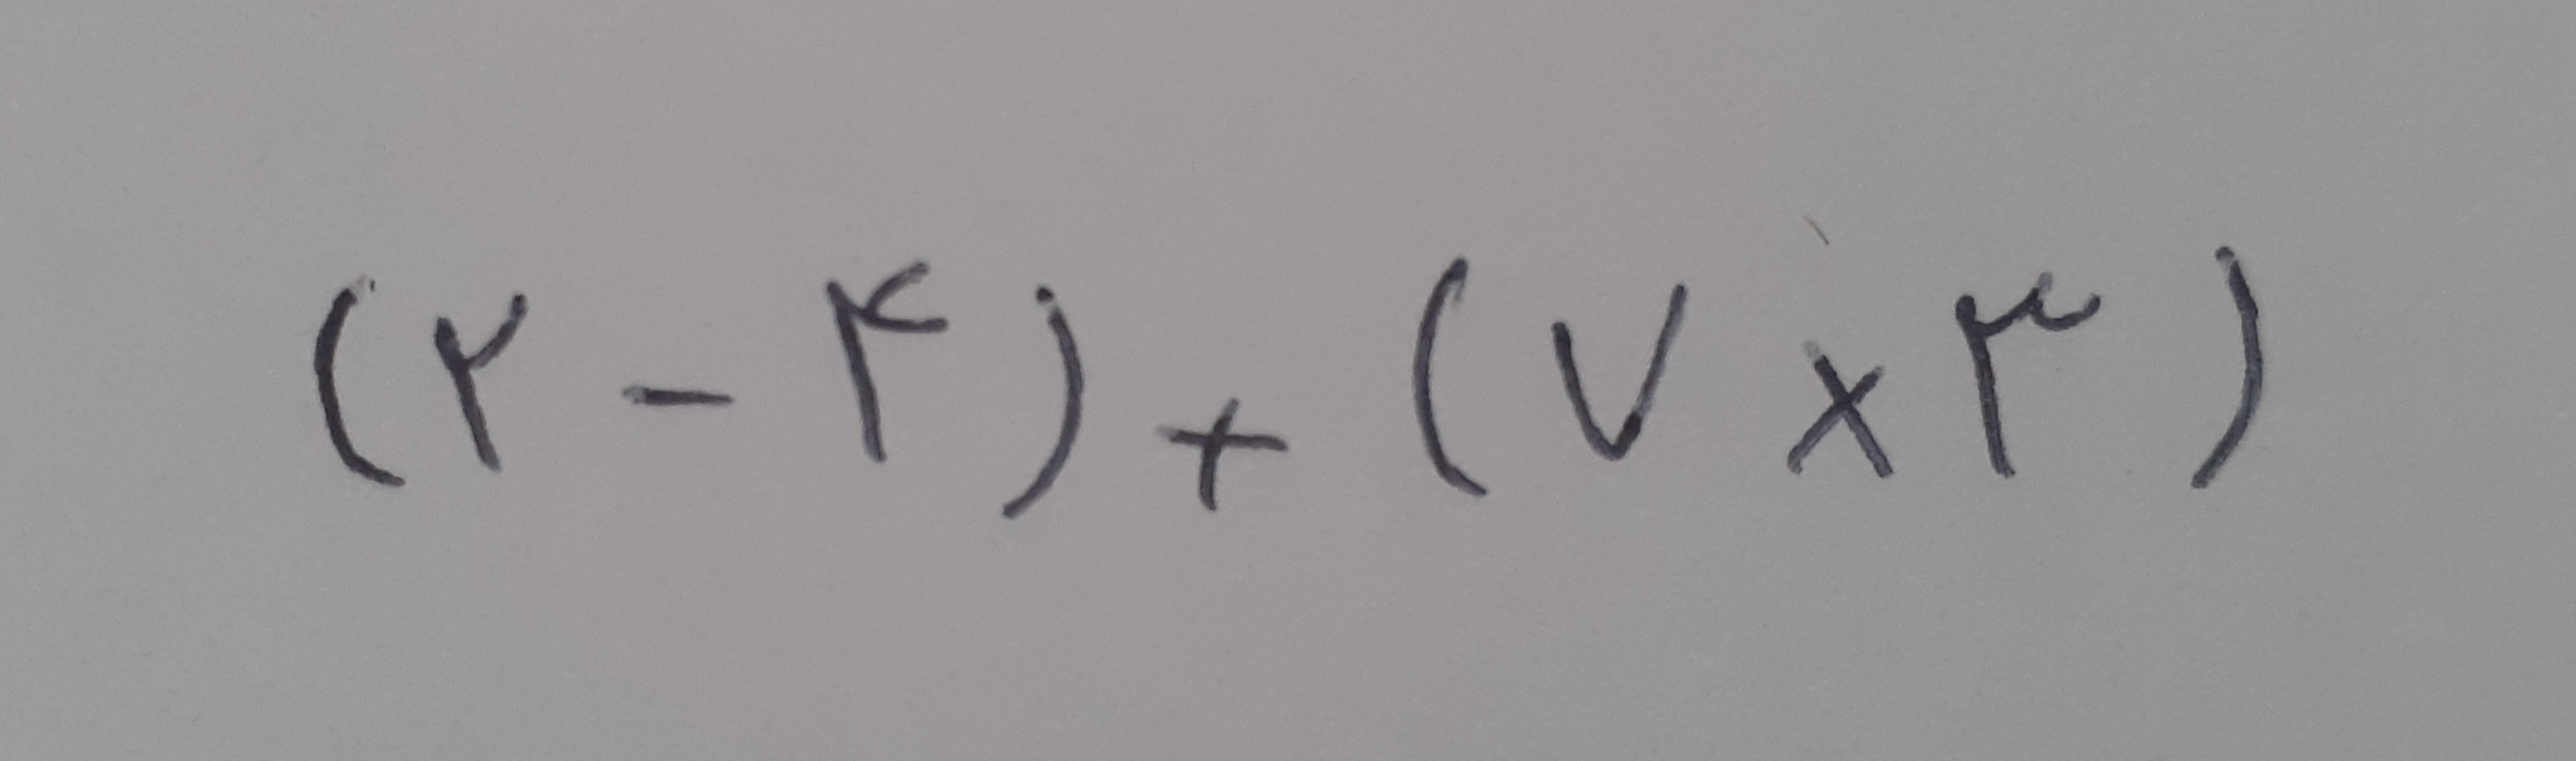 (۲ - ۴) + (۷ × ۳)